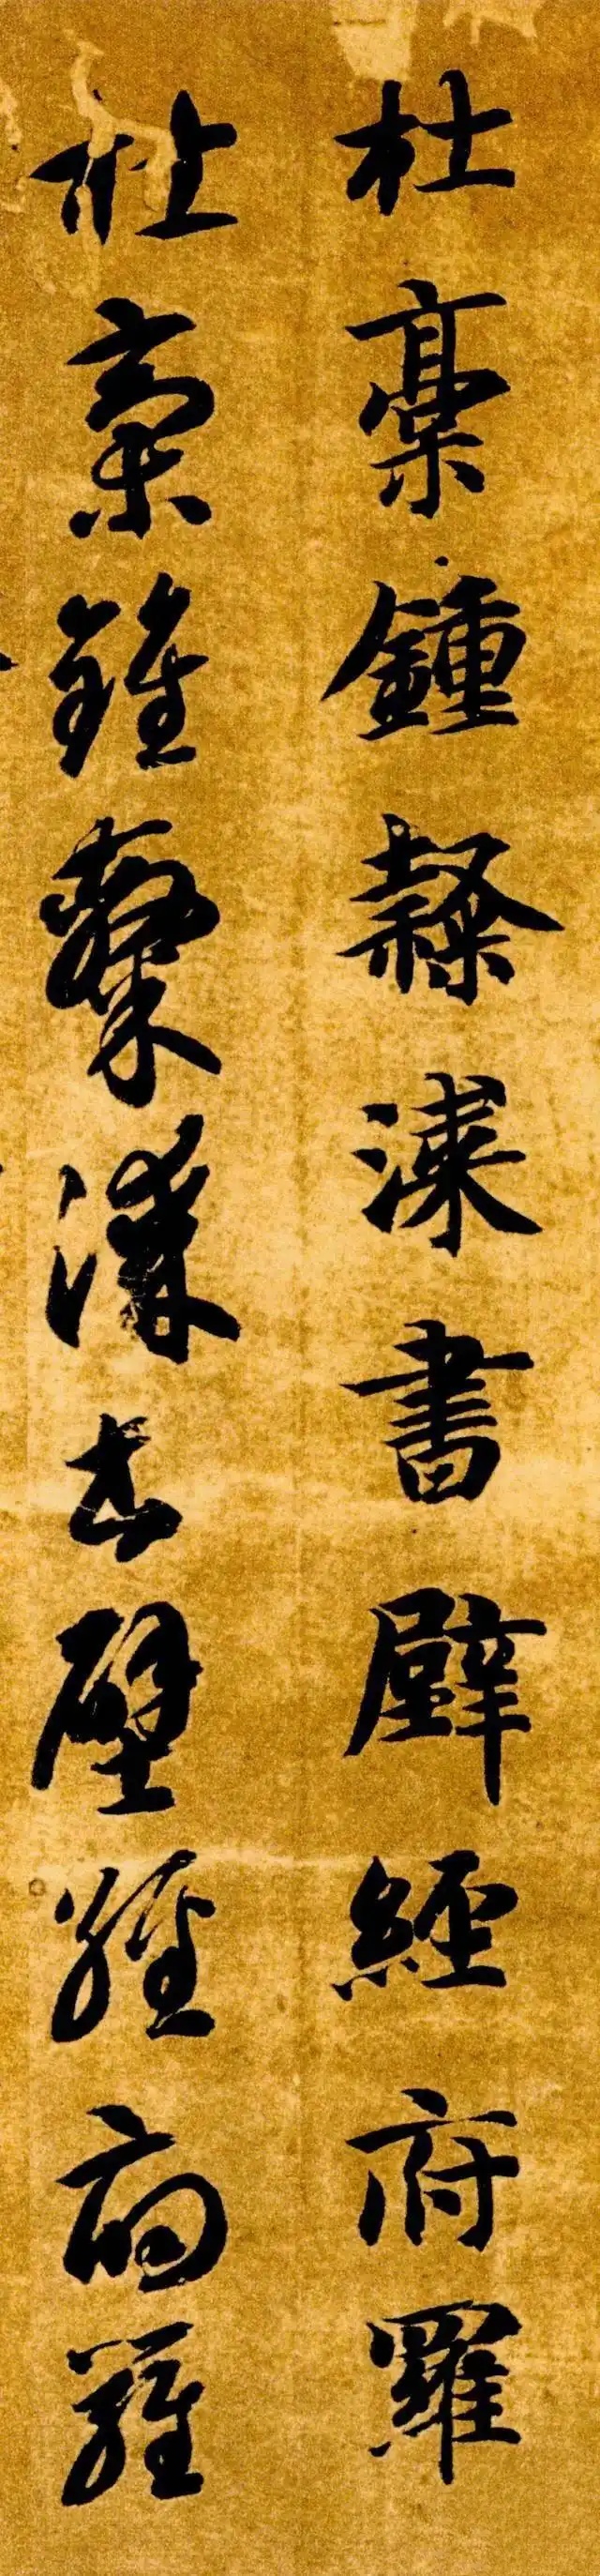 杜稾鍾隸漆書壁經府羅
杜稾鍾隸漆书壁經府羅